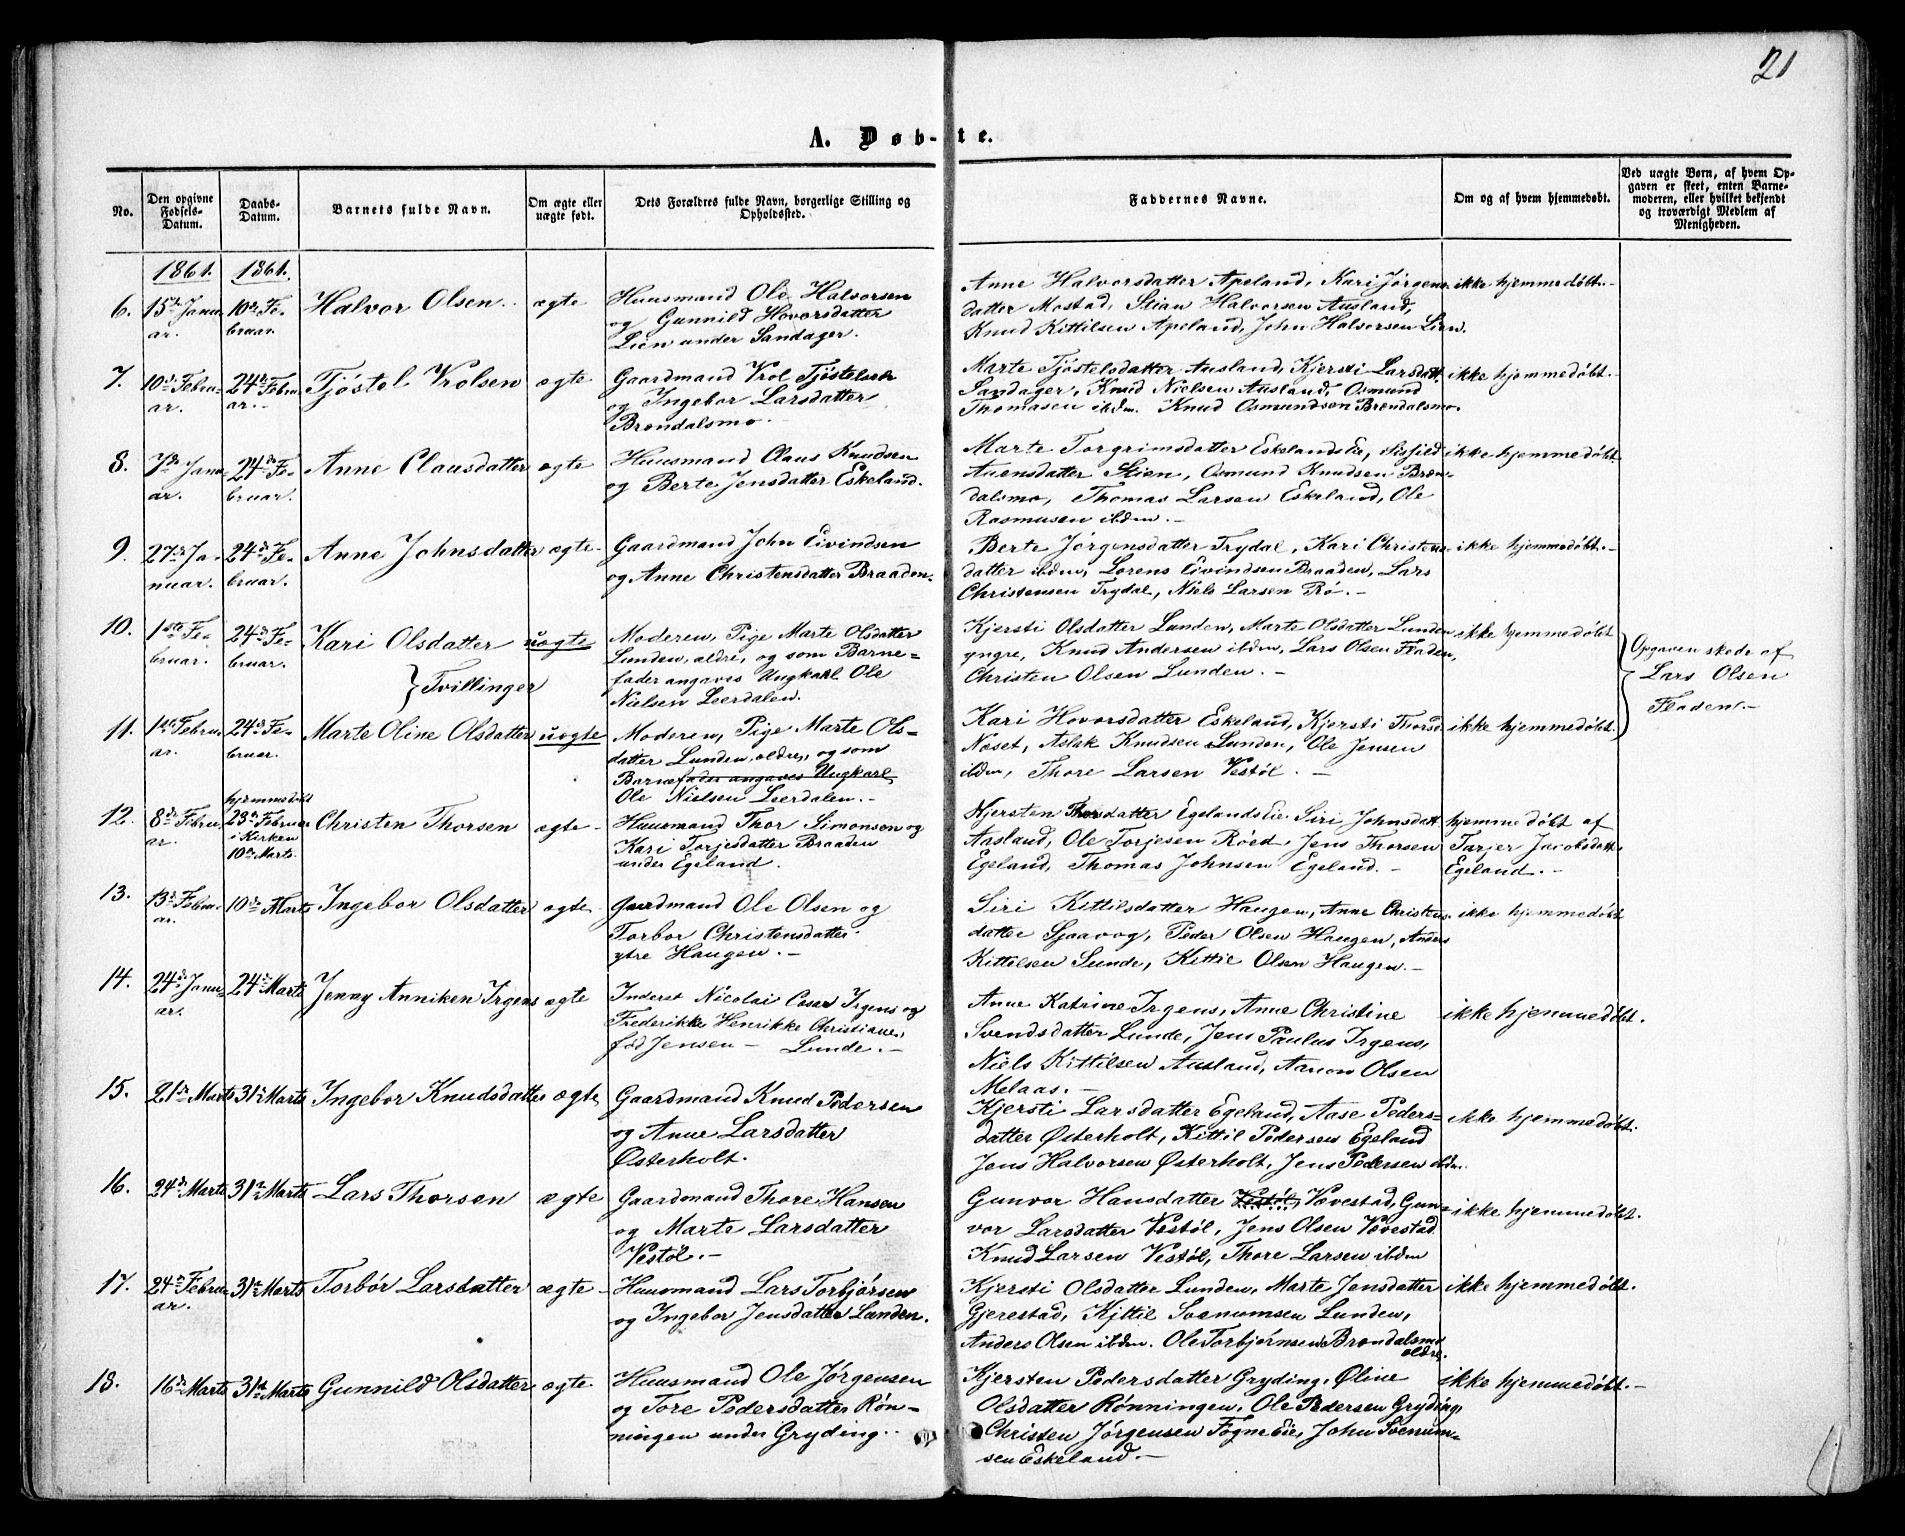 21
A. Døb-te.
No.
Den opgivne Fødsels-Datum.
Daabs-Datum.
Barnets fulde Navn.
Om ægte eller uægte født.
Dets Forældres fulde Navn, borgerlige Stilling og Opholdssted.
Faddernes Navne.
Om og af hvem hjemmedøbt.
Ved uægte Børn, af hvem Opgaven er skeet, enten Barnemoderen, eller hvilket bekjendt og troværdigt Medlem af Menigheden.
1861. 1861.
6. 15de Janu- 10de Fe- Halvor Olsen. ægte Huusmand Ole Halvorsen Anne Halvorsdatter Apeland, Kari Jørgens- ikke hjemmedøbt.
ar. bruar. og Gunnild Hovorsdatter datter Mostad, Stian Halvorsen Ausland,
Lien under Sandager. Knud Kittilsen Apeland, John Halvorsen Lien.
7. 10de Febru- 24de Febru- Tjøstel Vrolsen ægte Gaardmand Vrol Tjøstelsen Marte Tjøstelsdatter Ausland, Kjersti Larsdatt. ikke hjemmedøbt.
ar. ar. og Ingebor Larsdatter Sandager, Knud Nielsen Ausland, Osmund
Brendalsmo. Thomasen ibdm. Knud Osmundsen Brendalsmo.
8. 7de Janu- 24de Fe- Anne Clausdatter ægte Huusmand Claus Knudsen Marte Torgrimsdatter Eskelandseie, Sisfild ikke hjemmedøbt.
ar. bruar. og Berte Jensdatter Eskeland. Auensdatter Stien, Osmund Knudsen Bren-
dalsmo, Thomas Larsen Eskeland, Ole
Rasmusen ibdm.
9. 27de Ja- 24de Fe- Anne Johnsdatter ægte Gaardmand John Eivindsen Berte Jørgensdatter Trydal, Kari Christens- ikke hjemmedøbt.
nuar. bruar. og Anne Christensdatter Braaden. datter ibdm, Lorens Eivindsen Braaden, Lars
Christensen Trydal, Niels Larsen Rø.
10. 1ste Fe- 24de Fe- Kari Olsdatter uægte Moderen, Pige Marte Olsdatter Kjersti Olsdatter Lunden, Marte Olsdatter Lunden ikke hjemmedøbt Opgaven skede af
bruar. bruar. Lunden, ældre, og som Barne- yngre, Knud Andersen ibdm, Lars Olsen Fladen, Lars Olsen
Tvillinger fader angaves Ungkarl Ole Christen Olsen Lunden. Fladen.
Nielsen Leerdalen.
11. 1ste Febru- 24de Fe- Marte Oline Olsdatter uægte Moderen, Pige Marte Ols- Kari Hovorsdatter Eskeland, Kjersti Thorsd. ikke hjemmedøbt.
ar. bruar. datter Lunden, ældre, og som Næset, Aslak Knudsen Lunden, Ole Jensen
Barnefader angaves Ungkarl ibdm, Thore Larsen Vestøl.
Ole Nielsen Leerdalen.
hjemmedøbt
12. 8de Febru- 23de Februar Christen Thorsen ægte Huusmand Thor Simonsen og Kjersten Thorsdatter Egelandseie, Siri Johnsdatt. hjemmedøbt af
ar. i Kirken Kari Torjesdatter Braaden Aasland, Ole Torjesen Røed, Jens Thorsen Tarjer Jacobsdatt.
10de Marts. under Egeland. Egeland, Thomas Johnsen Egeland. Egeland.
13. 13de Febru- 10de Marts Ingebor Olsdatter ægte Gaardmand Ole Olsen og Siri Kittilsdatter Haugen, Anne Christens- ikke hjemmedøbt
ar. Torbor Christensdatter datter Sjaavog, Peder Olsen Haugen, Anders
ytre Haugen. Kittilsen Sunde, Kittil Olsen Haugen.
14. 24de Janu- 24de Marts Jenny Anniken Irgens ægte Inderst Nicolai Cæsar Irgens og Anne Katrine Irgens, Anne Christine ikke hjemmedøbt.
ar. Frederikke Henrikke Christiane, Svendsdatter Lunde, Jens Paulus Irgens,
fød Jensen Lunde. Niels Kittilsen Ausland, Aanon Olsen
Melaas.
15. 21de Marts 31te Marts Ingebor Knudsdatter ægte Gaardmand Knud Pedersen Kjersti Larsdatter Egeland, Aase Peders- ikke hjemmedøbt.
og Anne Larsdatter datter Østerholt, Kittil Pedersen Egeland
Østerholt. Jens Halvorsen Østerholt, Jens Pedersen ibdm.
16. 24de Marts 31te Marts Lars Thorsen ægte Gaardmand Thore Hansen Gunvor Hansdatter Vestøl, Vævestad, Gun- ikke hjemmedøbt.
og Marte Larsdatter vor Larsdatter Vestøl, Jens Olsen Vævestad
Vestøl. Knud Larsen Vestøl, Thore Larsen ibdm
17. 24de Febru- 31te Marts Torbør Larsdatter ægte Huusmand Lars Torbjørsen Kjersti Olsdatter Lunden, Marte Jensdatter ikke hjemmedøbt.
ar. og Ingebor Jensdatter Lunden. Gjerestad, Kittil Svenumsen Lunden,
Anders Olsen ibdm. Ole Torbjørnsen Brendalsmo
ældre.
18. 16de Marts 31te Marts Gunnild Olsdatter ægte Huusmand Ole Jørgensen Kjersten Pedersdatter Gryding, Oline ikke hjemmedøbt.
og Tore Pedersdatter Røn- Olsdatter Rønningen, Ole Pedersen Gryding,
ningen under Gryding. Christen Jørgensen Fogneeie, John Svenum-
sen Eskeland.